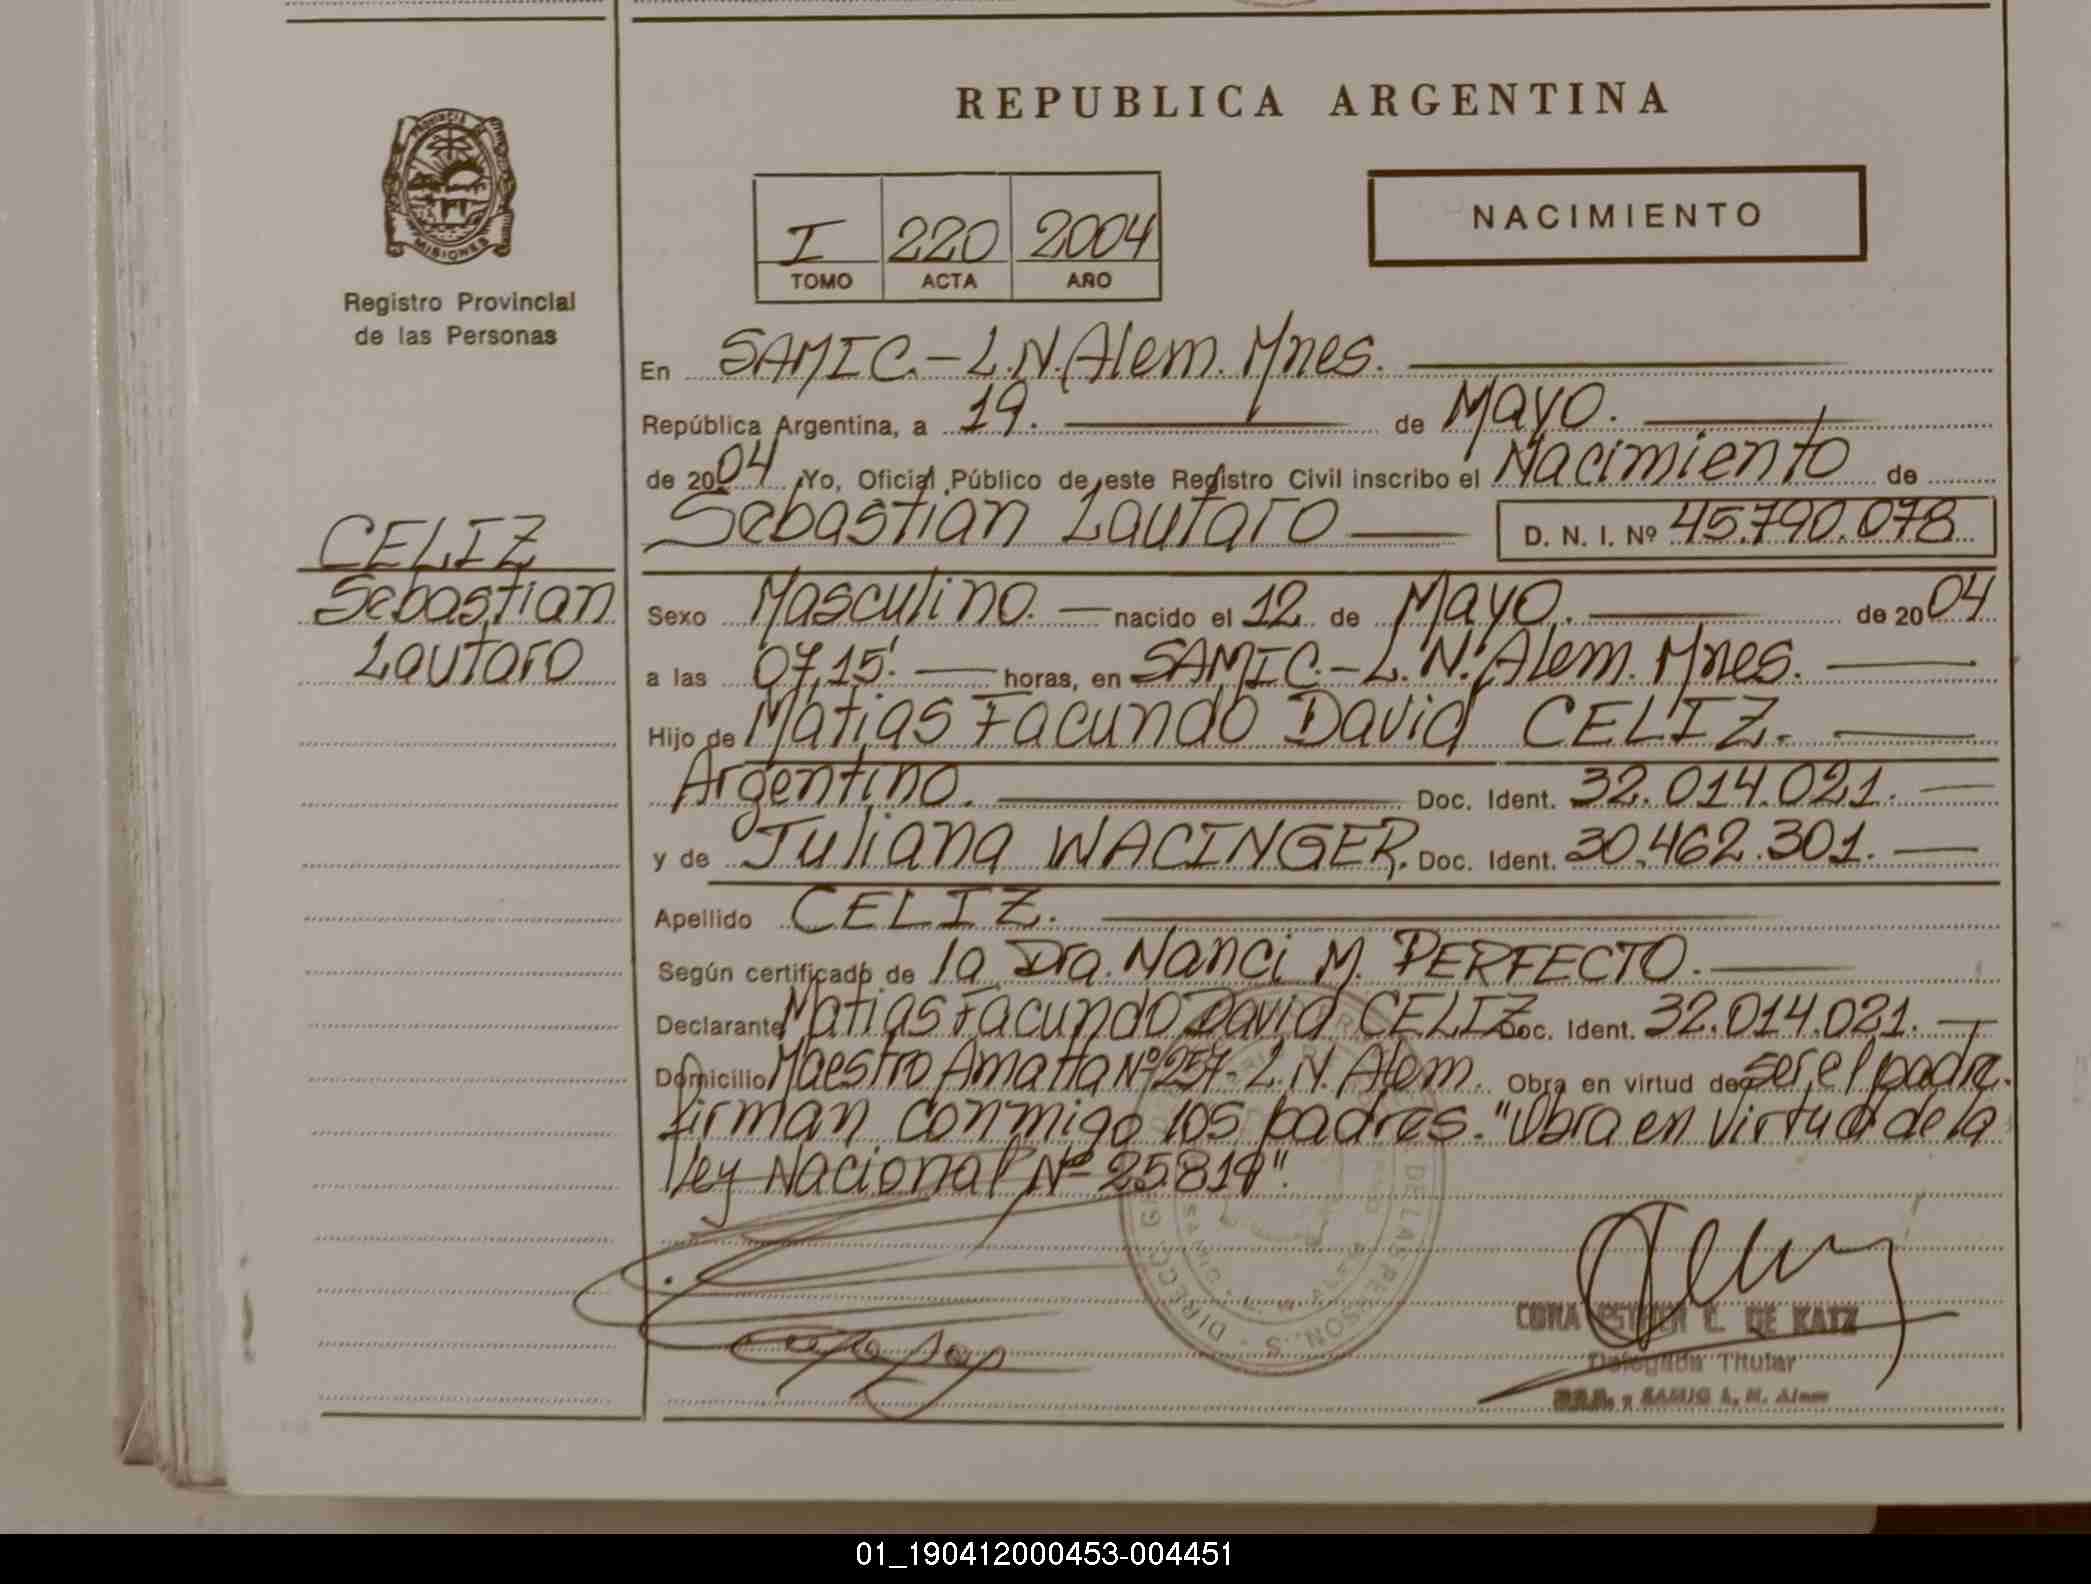 REPUBLICA ARGENTINA
PROVINCIA DE
MISIONES
Registro Provincial
de las Personas
I 220 2004
TOMO ACTA AÑO
NACIMIENTO
En SAMIC.-L.N.Alem. Mnes.
República Argentina, a 19. de Mayo.
de 2004 Yo, Oficial Público de este Registro Civil inscribo el Nacimiento de
Sebastian Lautaro D. N. I. Nº 45.790.078
CELIZ
Sebastian
Lautaro
Sexo Masculino. nacido el 12 de Mayo. de 2004
a las 07,15'. horas, en SAMIC.-L.N.Alem. Mnes.
Hijo de Matias Facundo David CELIZ.
Argentino. Doc. Ident. 32.014.021.
y de Juliana WACINGER. Doc. Ident. 30.462.301.
Apellido CELIZ.
Según certificado de la Dra. Nanci M. PERFECTO.
Declarante Matias Facundo David CELIZ Doc. Ident. 32.014.021.
Domicilio Maestro Amatta Nº 257-L.N. Alem. Obra en virtud de ser el padre.
firman conmigo los padres. "Obra en virtud de la
ley Nacional Nº 25819".
DE LAS PERSONAS
C. DE KATZ
Delegada Titular
SAMIC L. N. Alem
01_190412000453-004451